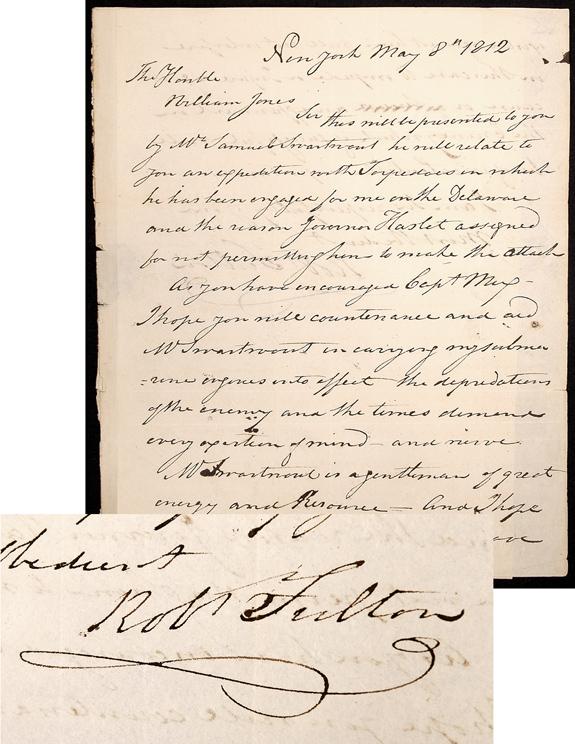 New york May 8th 1812
The Honble
William Jones
Sir this will be presented to you
by Mr Samuel Swartwout he will relate to
you an expedition with Torpedoes in which
he has been engaged for me on the Delaware
and the reason Governor Haslet assigned
for not permitting him to make the attack
As you have encouraged Capt Mix –
I hope you will countenance and aid
Mr Swartwout in carrying my subma
-rine engines into effect the depredations
of the enemy and the times demand
every exertion of mind – and nerve.
Mr Swartwout is a gentleman of great
energy and Resource – And I hope
Obedient
Robt Fulton